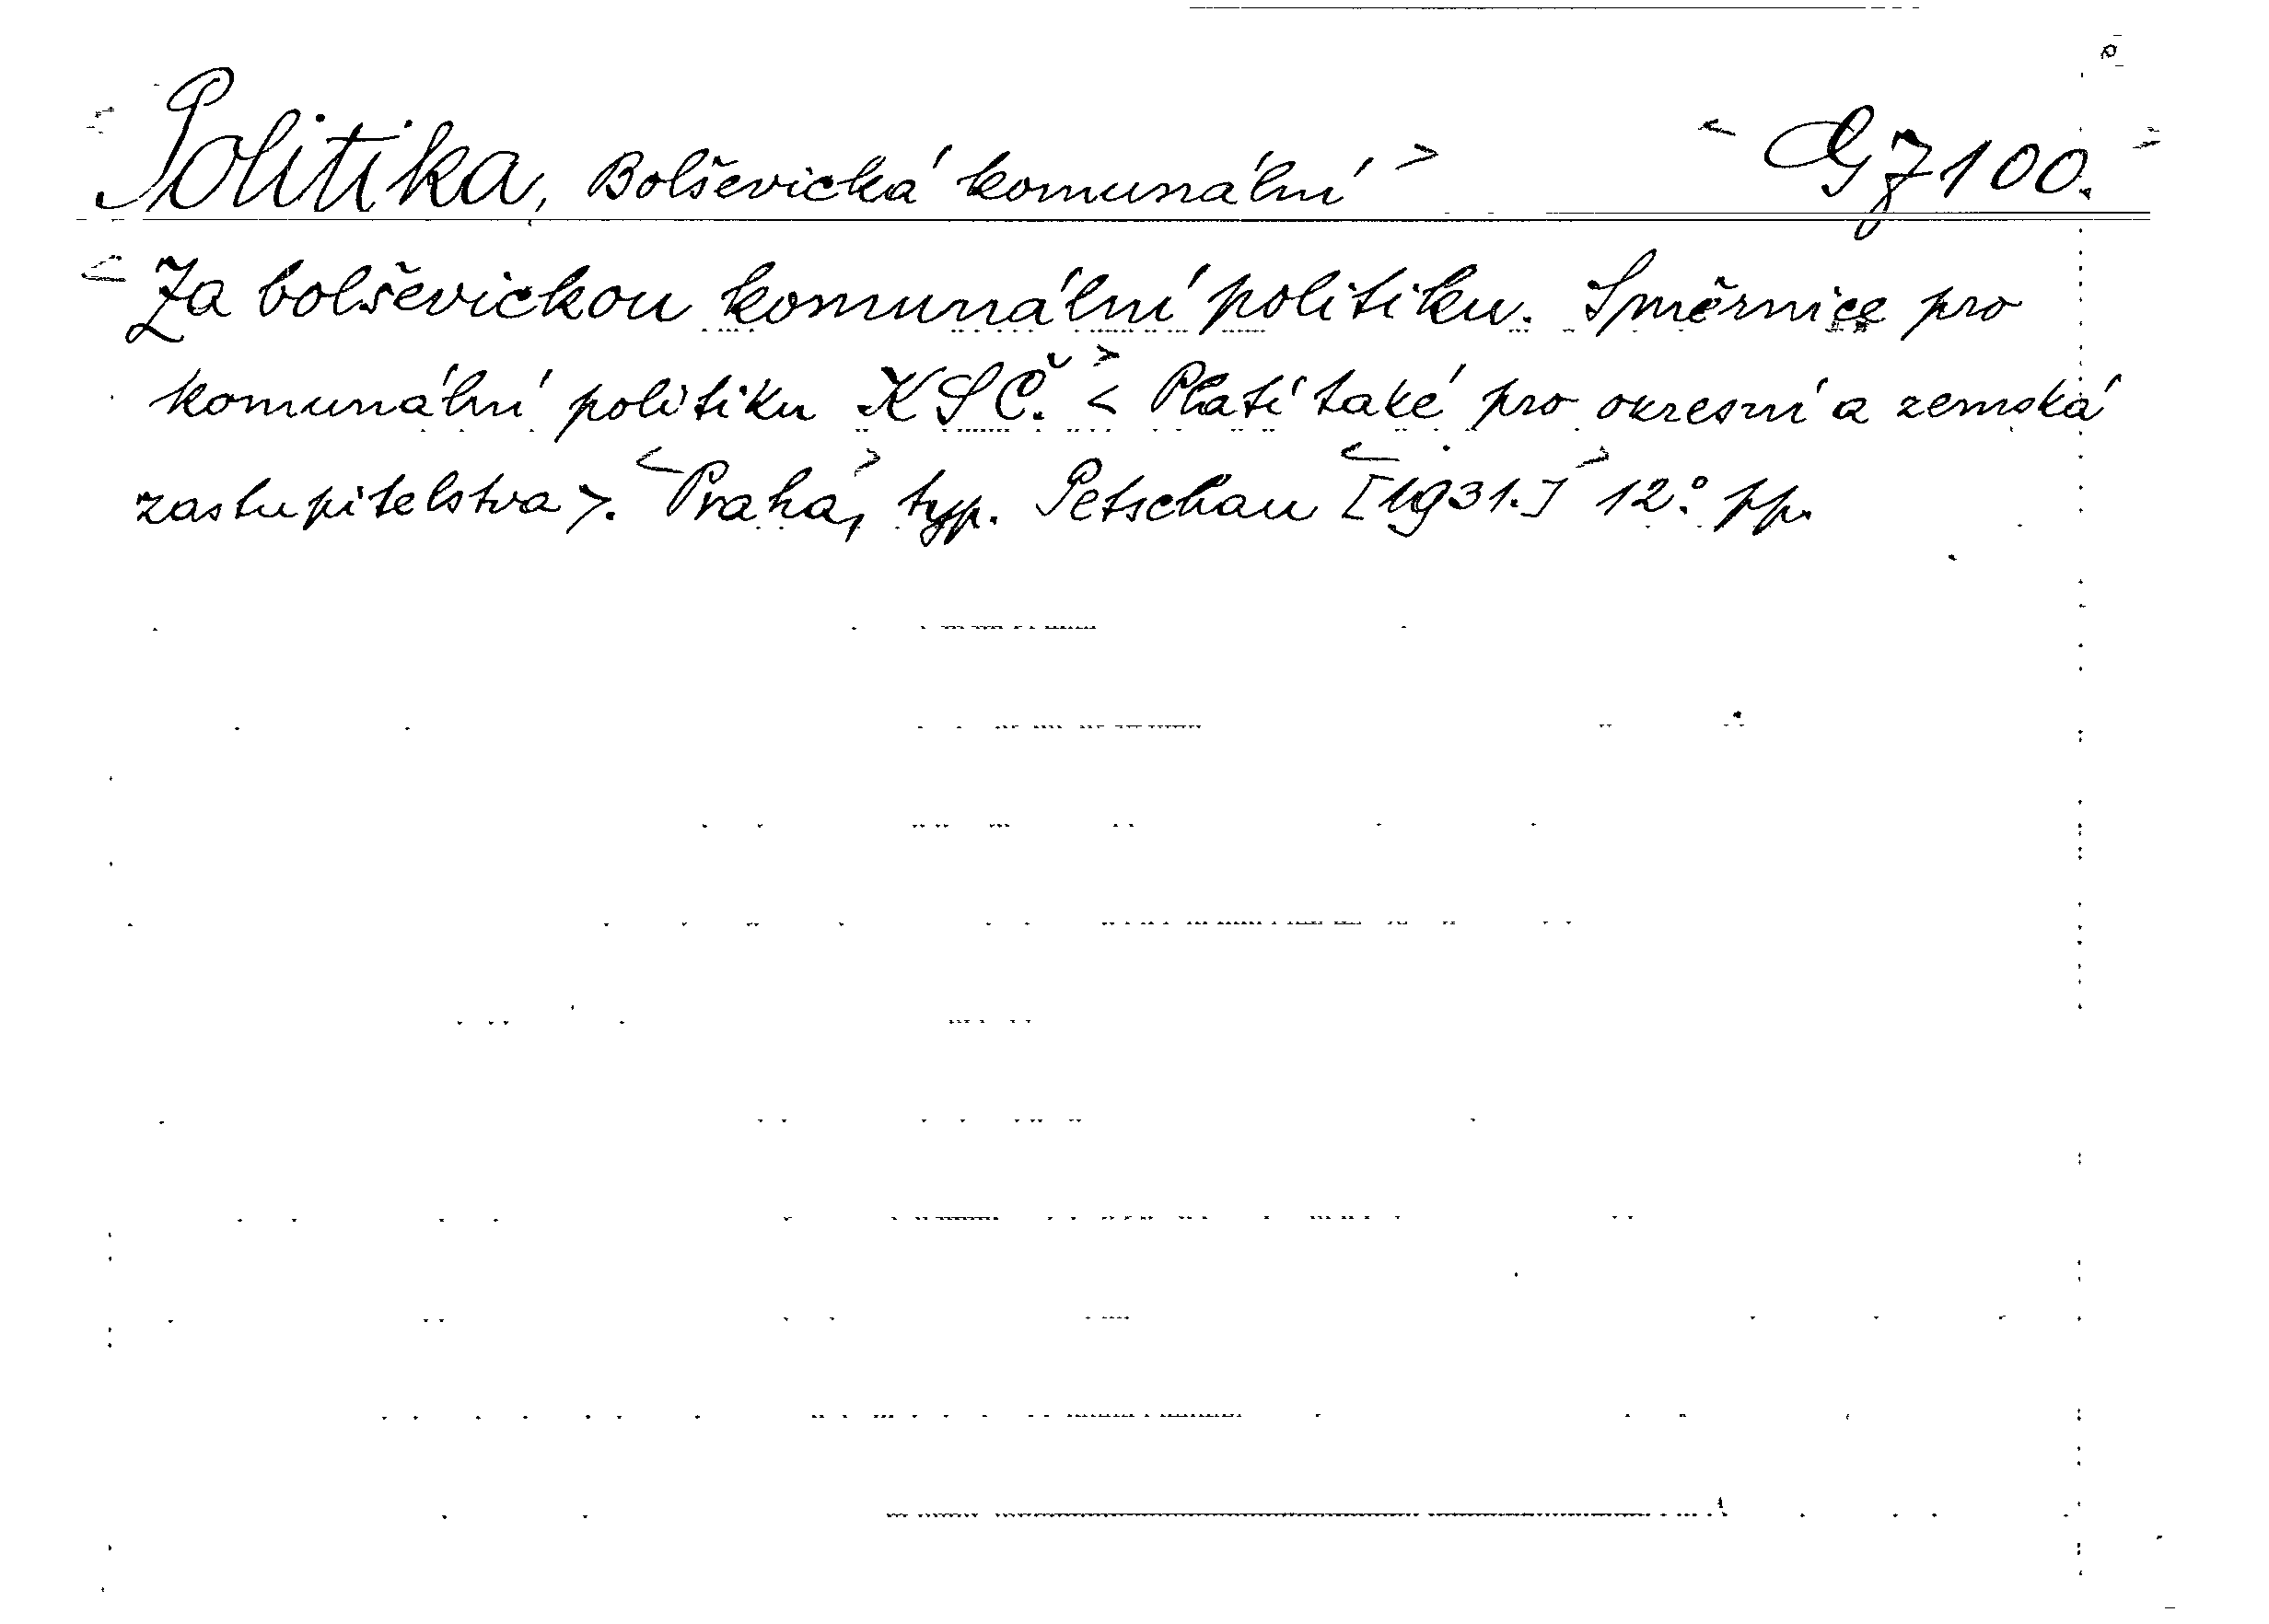 Politika, Bolševická komunální > < G J 100. >
< Za bolševickou komunální politiku. Směrnice pro
komunální politiku KSČ. > < Platí také pro okresní a zemská
zastupitelstva >. < Praha, > typ. Petschau < [1931.] > 12° pp.